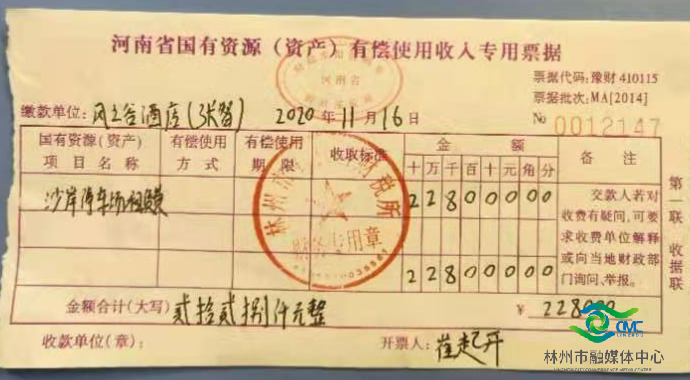 河南省国有资源（资产）有偿使用收入专用票据
河南省
票据代码:豫财 410115
票据批次:MA[2014]
缴款单位: 风之谷酒店(张智) 2020 年 11 月 16 日
No 0012147
国有资源(资产) 项目名称 有偿使用方式 有偿使用期限 收取标准 金额 备注
十 万 千 百 十 元 角 分
沙岸停车场租赁 2 2 8 0 0 0 0 0
交款人若对
收费有疑问,可要
求收费单位解释
或向当地财政部
门询问、举报。
2 2 8 0 0 0 0 0
金额合计(大写) 贰拾贰捌仟元整 ¥ 228000
收款单位(章): 开票人: 崔起开
第一联 收据联
林州市 财税所
财务专用章
CMC
林州市融媒体中心